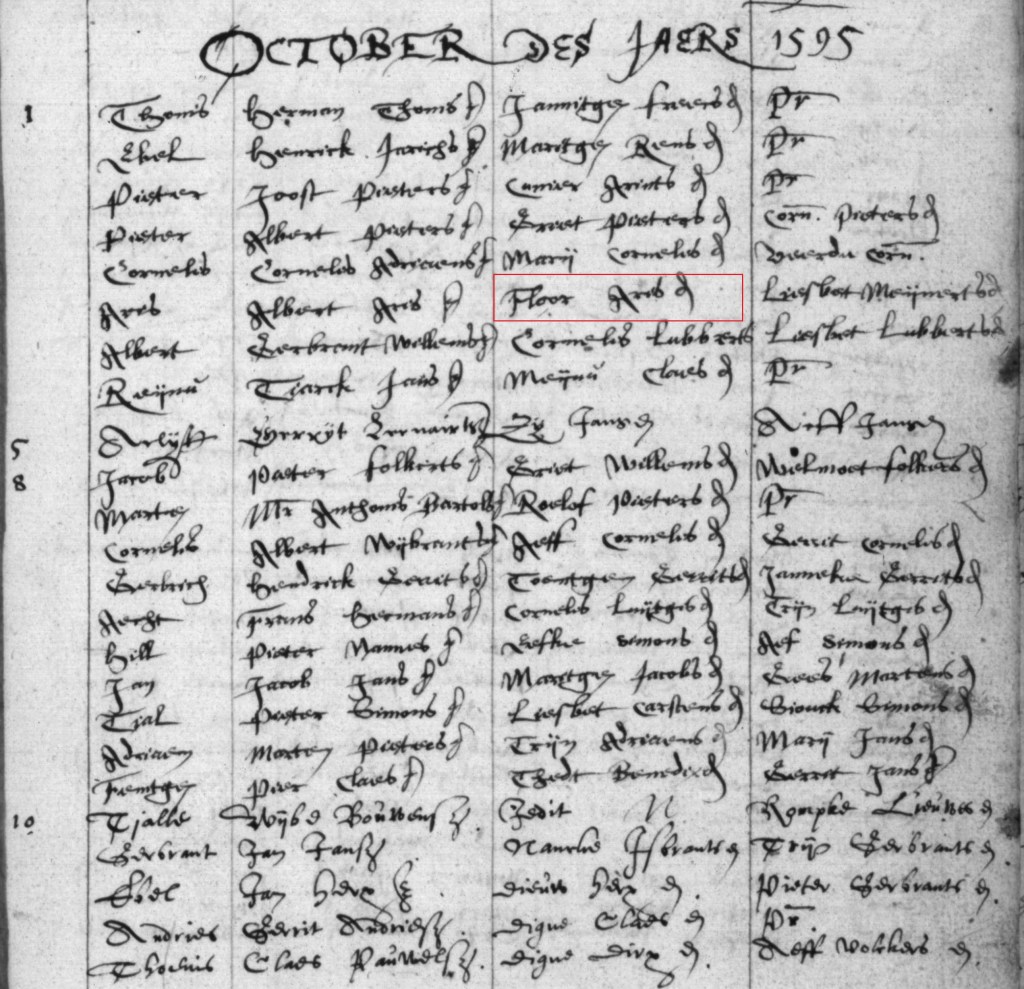 OCTOBER DES JAERS 1595
1 Thonis Herman Thonis f Jannitgen freers d Pr
Henrick Jarichs f Maritgen Rens d Pr
Pieter Joost Pieters f Arints d Pr
Pieter Albert Pieters f Griet Pieters d Corn. Pieters d
Cornelis Cornelis Adriaens f Marij Cornelis d Corn.
Aris Albert Aris f Floor Aris d Liesbet Meijnerts d
Albert Gerbrant Willems f Cornelis Lubberts Liesbet Lubberts d
Reijnu Tiarck Jans f Meijnu Claes d Pr
5 Gerryt Jans d Aeff Jans d
8 Jacob Pieter folkerts f Griet Willems d Welmoet folkers d
Marten Mr Anthonis Bartols f Roelof Pieters d Pr
Cornelis Albert Wijbrants f Aeff Cornelis d Gerrit Cornelis d
Gerbrich Hendrick Gerrits f Toentgen Gerrits d Janneken Gerrits d
Aecht Frans Hermans f Cornelis Luijtgis d Trijn Luijtgis d
Hill Pieter Nannes f Simons d Aef Simons d
Jan Jacob Jans f Maritgen Jacobs d Grees Martens d
Tial Pieter Simons f Liesbet Carstens d Siouck Simons d
Adriaen Morten Pieters f Trijn Adriaens d Marij Jans d
Femtgen Peer Claes f Thedt Benedix d Gerrit Jans f
10 Tjalle Wijbe Bouwens z. Jedit N Rompke Lieuwes d
Gerbrant Jan Jans z. Isbrants d Trijn Gerbrants d.
Evel Jan Herx z. Dieuw Herx d. Pieter Gerbrants d.
Andries Gerrit Andries z. Digne Claes d Pr.
Thoenis Claes Pauwels z. Digne Dirx d. Aeff Wolckers d.